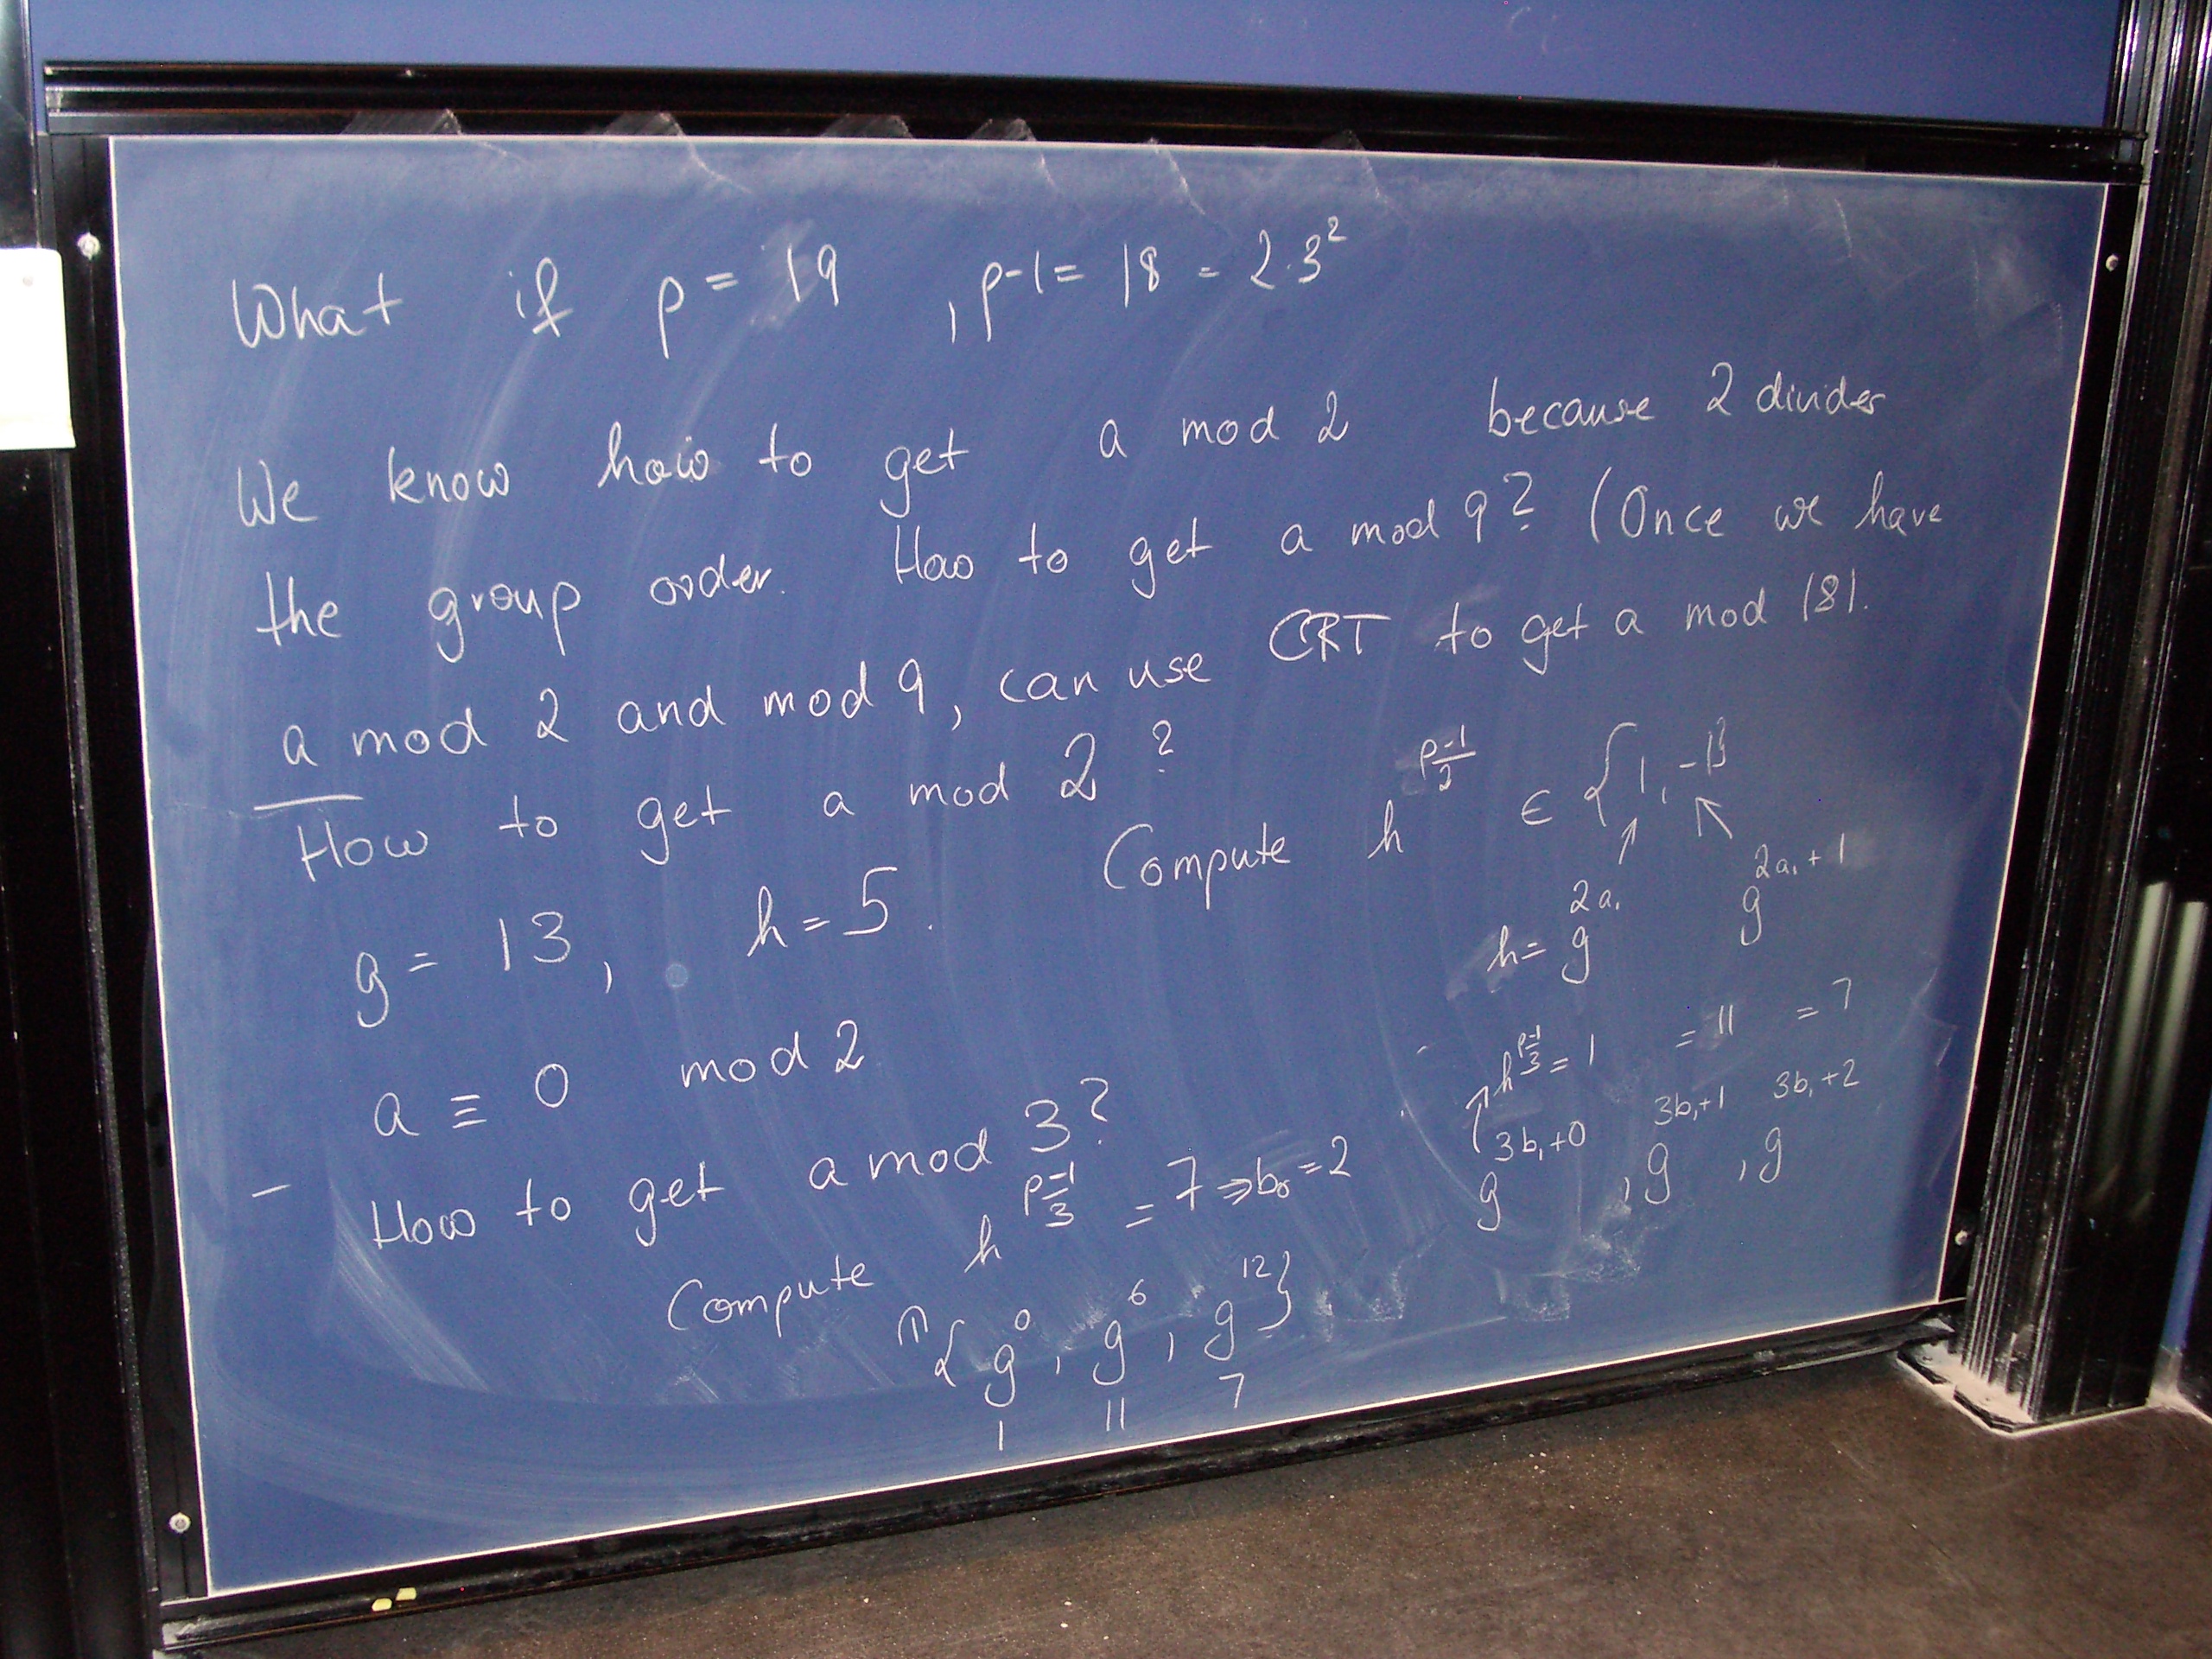 What if p = 19 , p-1 = 18 = 2·3²
We know how to get a mod 2 because 2 divides
the group order. How to get a mod 9? (Once we have
a mod 2 and mod 9, can use CRT to get a mod 18).
How to get a mod 2 ? Compute h^((p-1)/2) ∈ {1, -1}
↑ ↖
g = 13, h = 5. h = g^(2a₁) g^(2a₁+1)
a ≡ 0 mod 2
↑ h^((p-1)/3) = 1 = 11 = 7
g^(3b₁+0) , g^(3b₁+1) , g^(3b₁+2)
- How to get a mod 3?
Compute h^((p-1)/3) = 7 ⇒ b₀ = 2
∈ {g⁰, g⁶, g¹²}
1 11 7